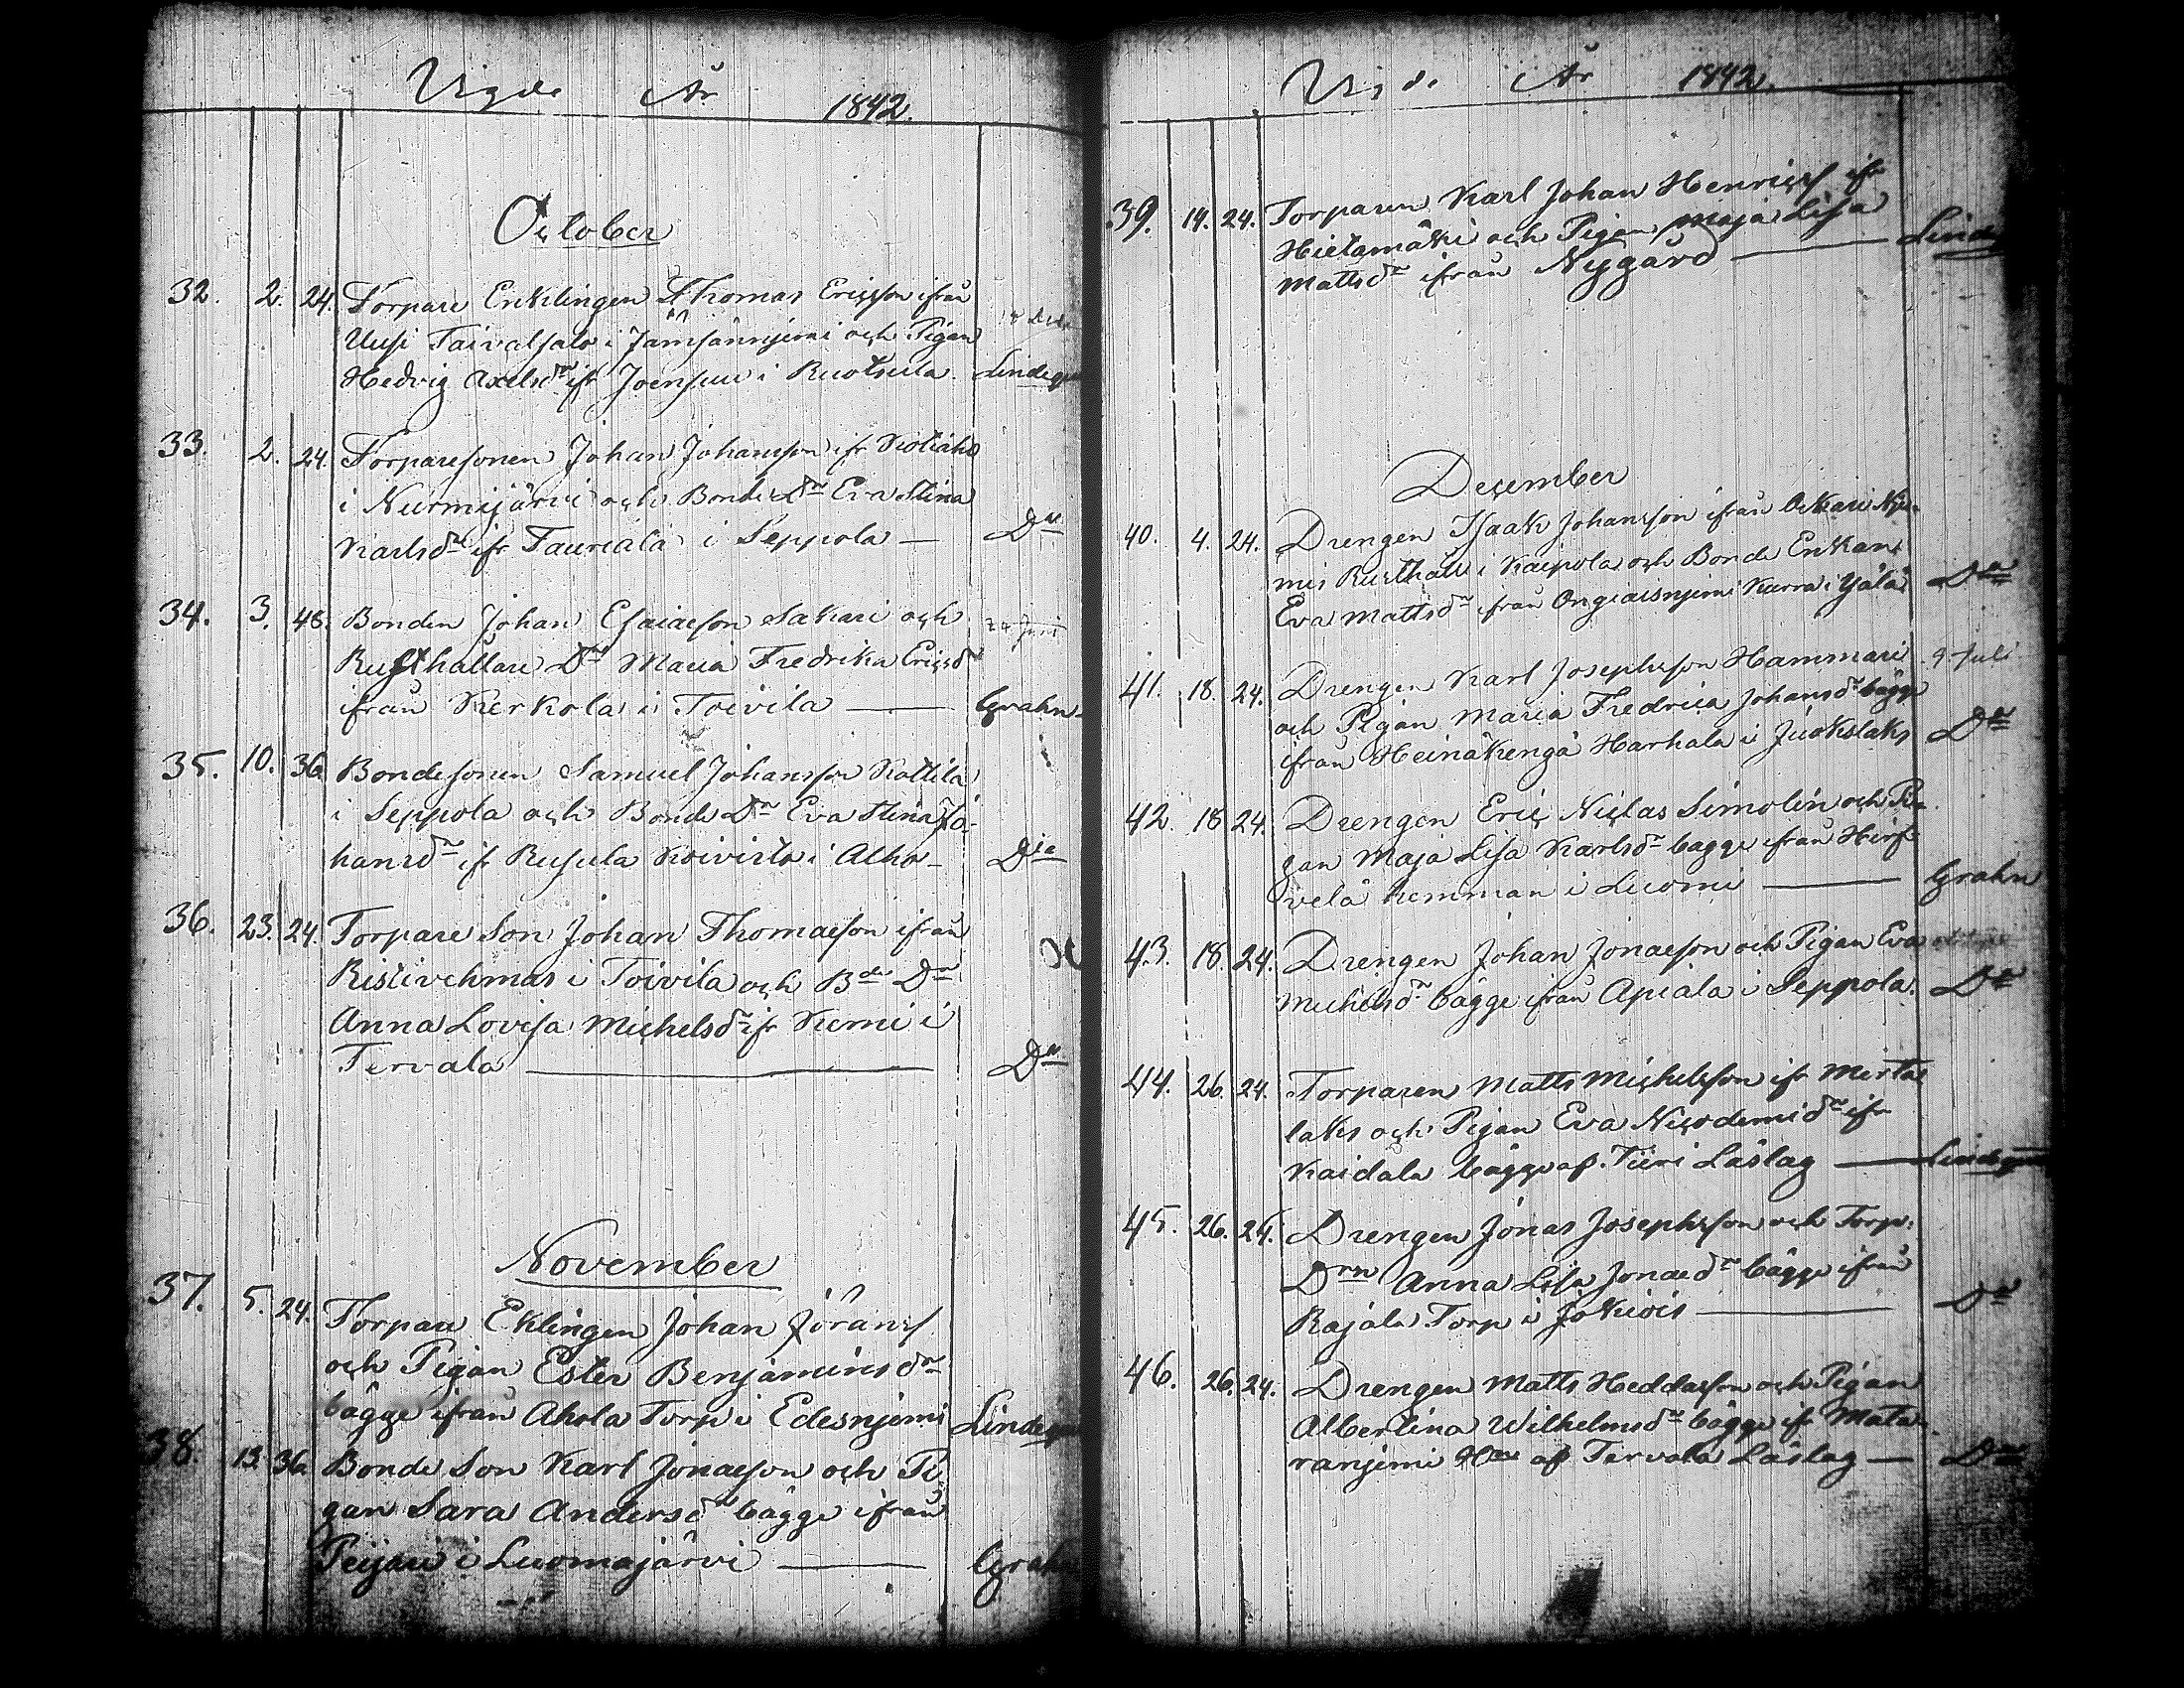 Vigde År 1842.
October
32. 2. 24. Torpare Enklingen Thomas Ericsson ifrån
Uusi Taivalsalo i Jämsänniemi och Pigan
Hedvig Axelsdr ifr Joensuu i Ruotsula Lindeqv
33. 2. 24. Torparesonen Johan Johansson ifr
i Nurmijärvi och Bonde Dr Eva Stina
Karlsdr ifr Tauriala i Seppola — Do
34. 3. 48. Bonden Johan Esaiasson Sakari och 24 Juni
Rusthållare Dr Maria Fredrika Ericsdr
ifrån Kerkola i Toivila — Grahn
35. 10. 36. Bondesonen Samuel Johansson Kottila
i Seppola och Bonde Dr Eva Stina Jo-
hansdr ifr Rusula Koivisto i Alho — Do
36. 23. 24. Torpare Son Johan Thomasson ifrån
Ristivehmas i Toivila och Bde Dr
Anna Lovisa Michelsdr ifr Kemi i
Tervala — Do
November
37. 5. 24. Torpare Eklingen Johan Jöranss
och Pigan Ester Benjaminsdr
bägge ifrån Ahola Torp i Edesnjemi Lindeqv
38. 13. 36. Bonde Son Karl Jonasson och Pi-
gan Sara Andersdr bägge ifrån
Peijari i Luomajärvi — Grahn
Vigde År 1842.
39. 14. 24. Torparen Karl Johan Henricss ifr
Hietamäki och Pigan Maja Lisa
Mattsdr ifrån Nygård — Linde
December
40. 4. 24. Drengen Isaak Johansson ifrån Oskari Nju-
mis Rusthåll i Kaipola och Bonde Enkan
Eva Mattsdr ifrån Ongiaisnjemi Karra i Jälä Do
41. 18. 24. Drengen Karl Josephsson Hammari 9 Juli
och Pigan Maria Fredrica Johansdr bägge
ifrån Heinäkengä Harhala i Juokslaks Do
42. 18 24. Drengen Eric Niclas Simolin och Pi-
gan Maja Lisa Karlsdr bägge ifrån Hirf-
velä hemman i Luomi — Grahn
43. 18. 24. Drengen Johan Jonasson och Pigan Eva
Michelsdr bägge ifrån Apiala i Seppola. Do
44. 26. 24. Torparen Matts Michelsson ifr Merta
laks och Pigan Eva Nicodemidr ifr
Kaidala bägge af Tiiri Läslag — Lindeqv
45. 26. 24. Drengen Jonas Josephsson och Torp:
Drn Anna Lisa Jonaedr bägge ifrån
Rajala Torp i Jokiois — Do
46. 26. 24. Drengen Matts Heddasson och Pigan
Albertina Wilhelmsdr bägge ifr Mata-
ranjemi Hne af Tervala Läslag — Do